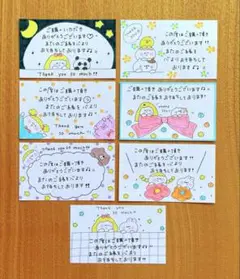 ありがとうございます♡
またのご縁を心より
お待ちしております
Thank you so much!!
この度はご購入頂き
ありがとうございます!!
またのご縁を心より
お待ちしております
この度はご購入頂き
ありがとうございます
またのご縁を心より
お待ちしております
Thank you
so much!!
この度はご購入頂き
ありがとうございます
またのご縁を心より
お待ちしております
Thank you so much!!
この度はご購入頂き
ありがとうございます
またのご縁を心より
お待ちしております!!
この度はご購入頂き
ありがとうございます
またのご縁を心より
お待ちしております
Thank you
so much!!
この度はご購入頂き
ありがとうございます
またのご縁を心より
お待ちしております